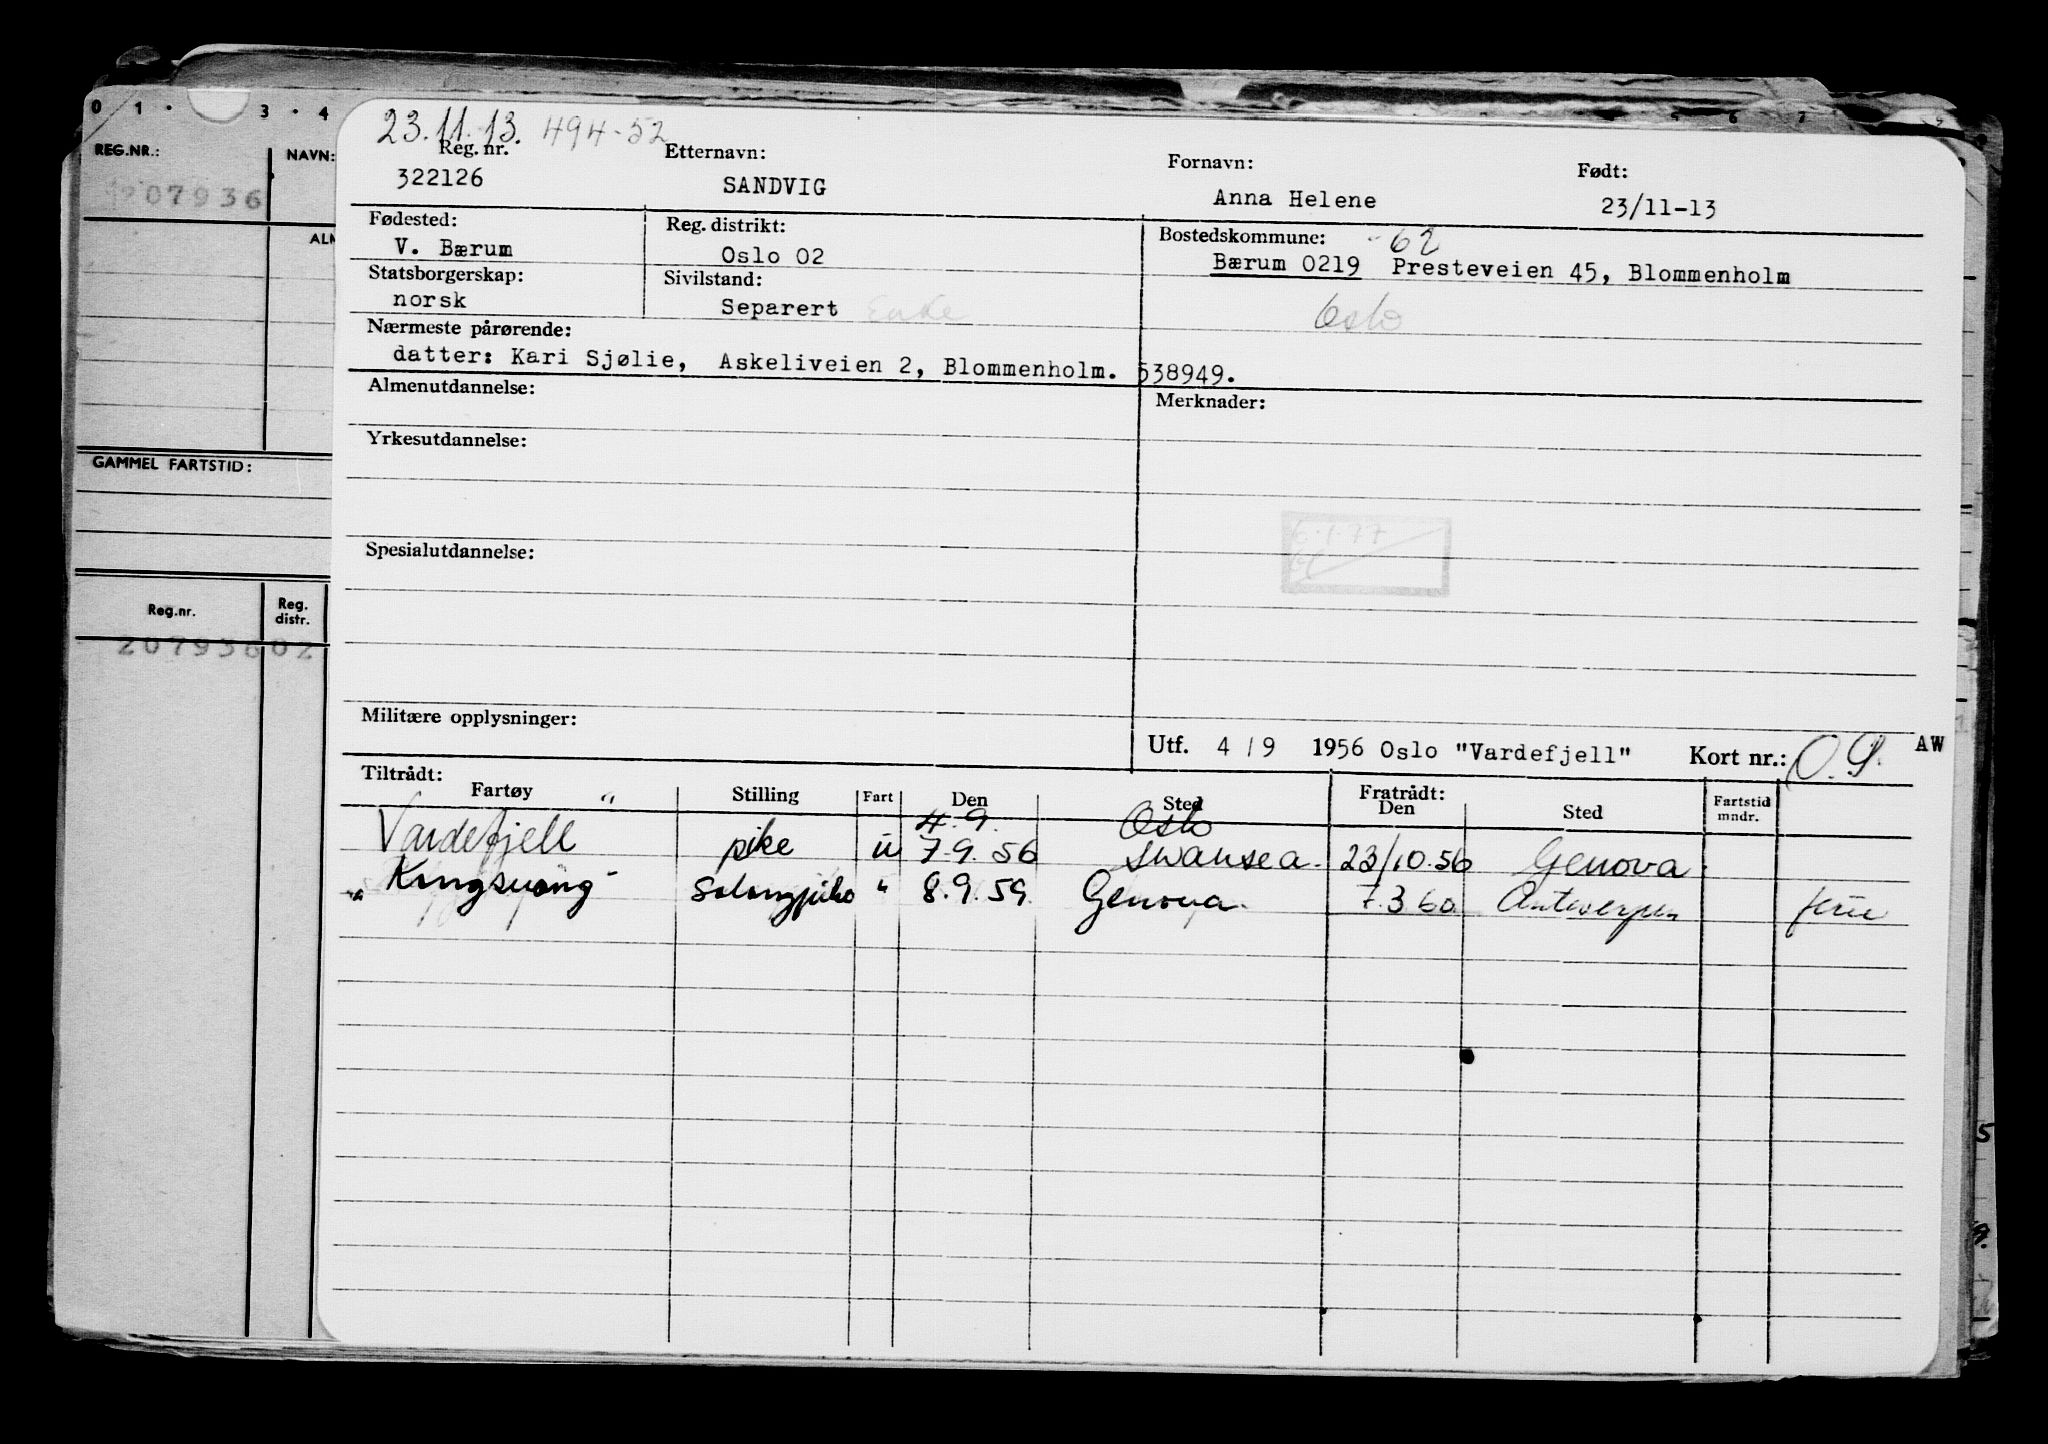 0 1 · 3 · 4 5 6 7
REG.NR.:
NAVN:
207936
ALM
GAMMEL FARTSTID:
Reg.nr.
Reg. distr.
20793602
23.11.13. 494-52
Reg. nr. Etternavn: Fornavn: Født:
322126 SANDVIG Anna Helene 23/11-13
Fødested: Reg. distrikt: Bostedskommune: -62
V. Bærum Oslo 02 Bærum 0219 Presteveien 45, Blommenholm
Statsborgerskap: Sivilstand:
norsk Separert Enke Oslo
Nærmeste pårørende:
datter: Kari Sjølie, Askeliveien 2, Blommenholm. 538949.
Almenutdannelse: Merknader:
Yrkesutdannelse:
6.1.77
Spesialutdannelse:
Militære opplysninger:
Utf. 4/9 1956 Oslo "Vardefjell" Kort nr.: AW
Tiltrådt: Fratrådt:
Fartøy Stilling Fart Den Sted Den Sted Fartstid mndr.
4.9. Oslo
Vardefjell pike u 7.9.56 Swansea 23/10.56 Genova
" Kongsvang Salongpike " 8.9.59 Genova 7.3 60 Antwerpen ferie